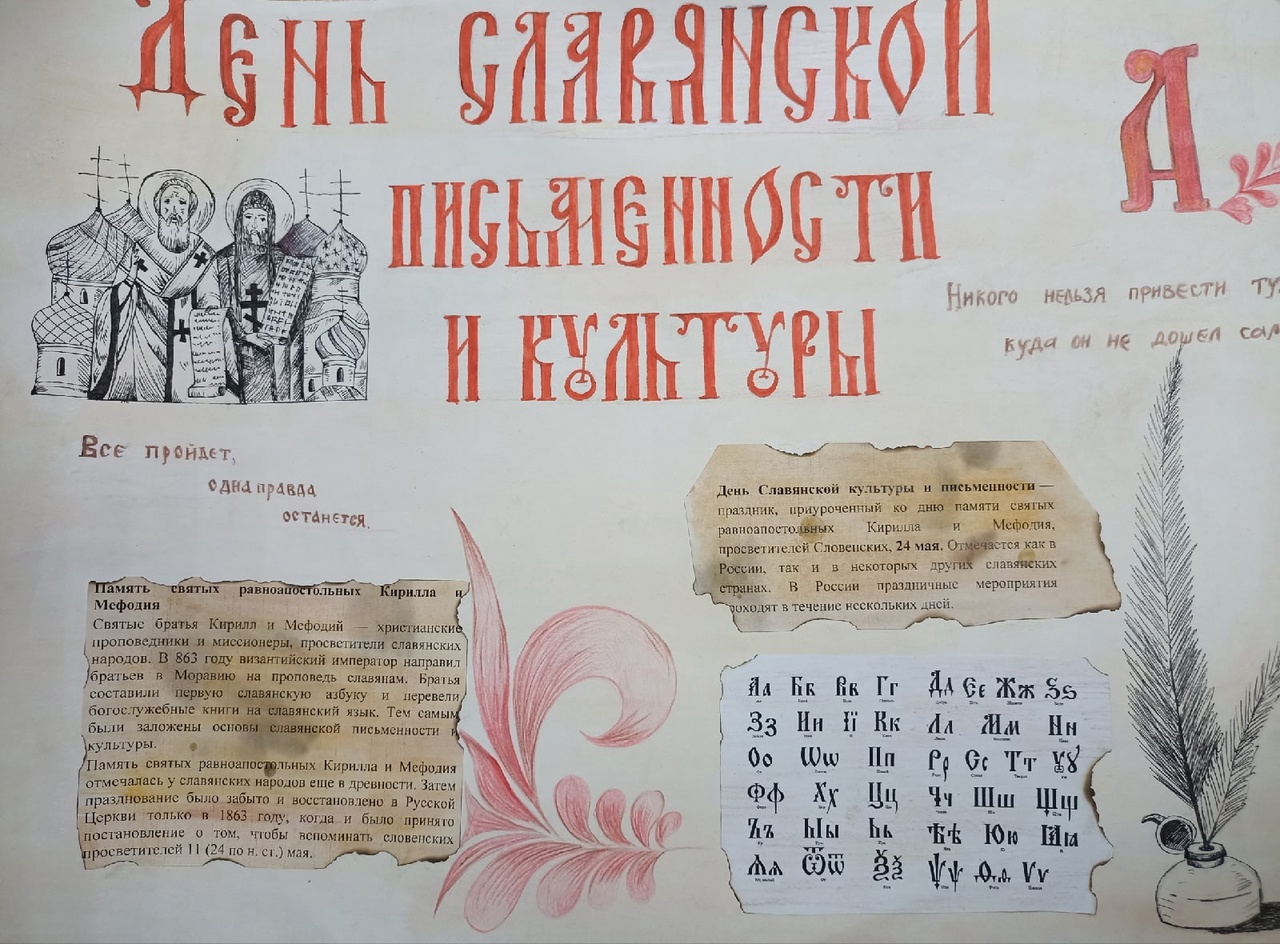 День славянской
письменности
и культуры
А
Никого нельзя привести
куда он не дошел
Все пройдет,
одна правда
останется.
День Славянской культуры и письменности —
праздник, приуроченный ко дню памяти святых
равноапостольных Кирилла и Мефодия,
просветителей Словенских, 24 мая. Отмечается как в
России, так и в некоторых других славянских
странах. В России праздничные мероприятия
проходят в течение нескольких дней.
Память святых равноапостольных Кирилла и
Мефодия
Святые братья Кирилл и Мефодий — христианские
проповедники и миссионеры, просветители славянских
народов. В 863 году византийский император направил
братьев в Моравию на проповедь славянам. Братья
составили первую славянскую азбуку и перевели
богослужебные книги на славянский язык. Тем самым
были заложены основы славянской письменности и
культуры.
Память святых равноапостольных Кирилла и Мефодия
отмечалась у славянских народов еще в древности. Затем
празднование было забыто и восстановлено в Русской
Церкви только в 1863 году, когда и было принято
постановление о том, чтобы вспоминать словенских
просветителей 11 (24 по н. ст.) мая.
Аа Бб Вв Гг Дд Єе Жж Ѕѕ
Зз Ии Її Кк Лл Мм Нн
Оо Ѡѡ Пп Рр Сс Тт Ѹѹ
Фф Хх Цц Чч Шш Щщ
Ъъ Ыы Ьь Ѣѣ Юю Ꙗꙗ
Ѧѧ Ѿѿ Ѯѯ Ѱѱ Ѳѳ Ѵѵ